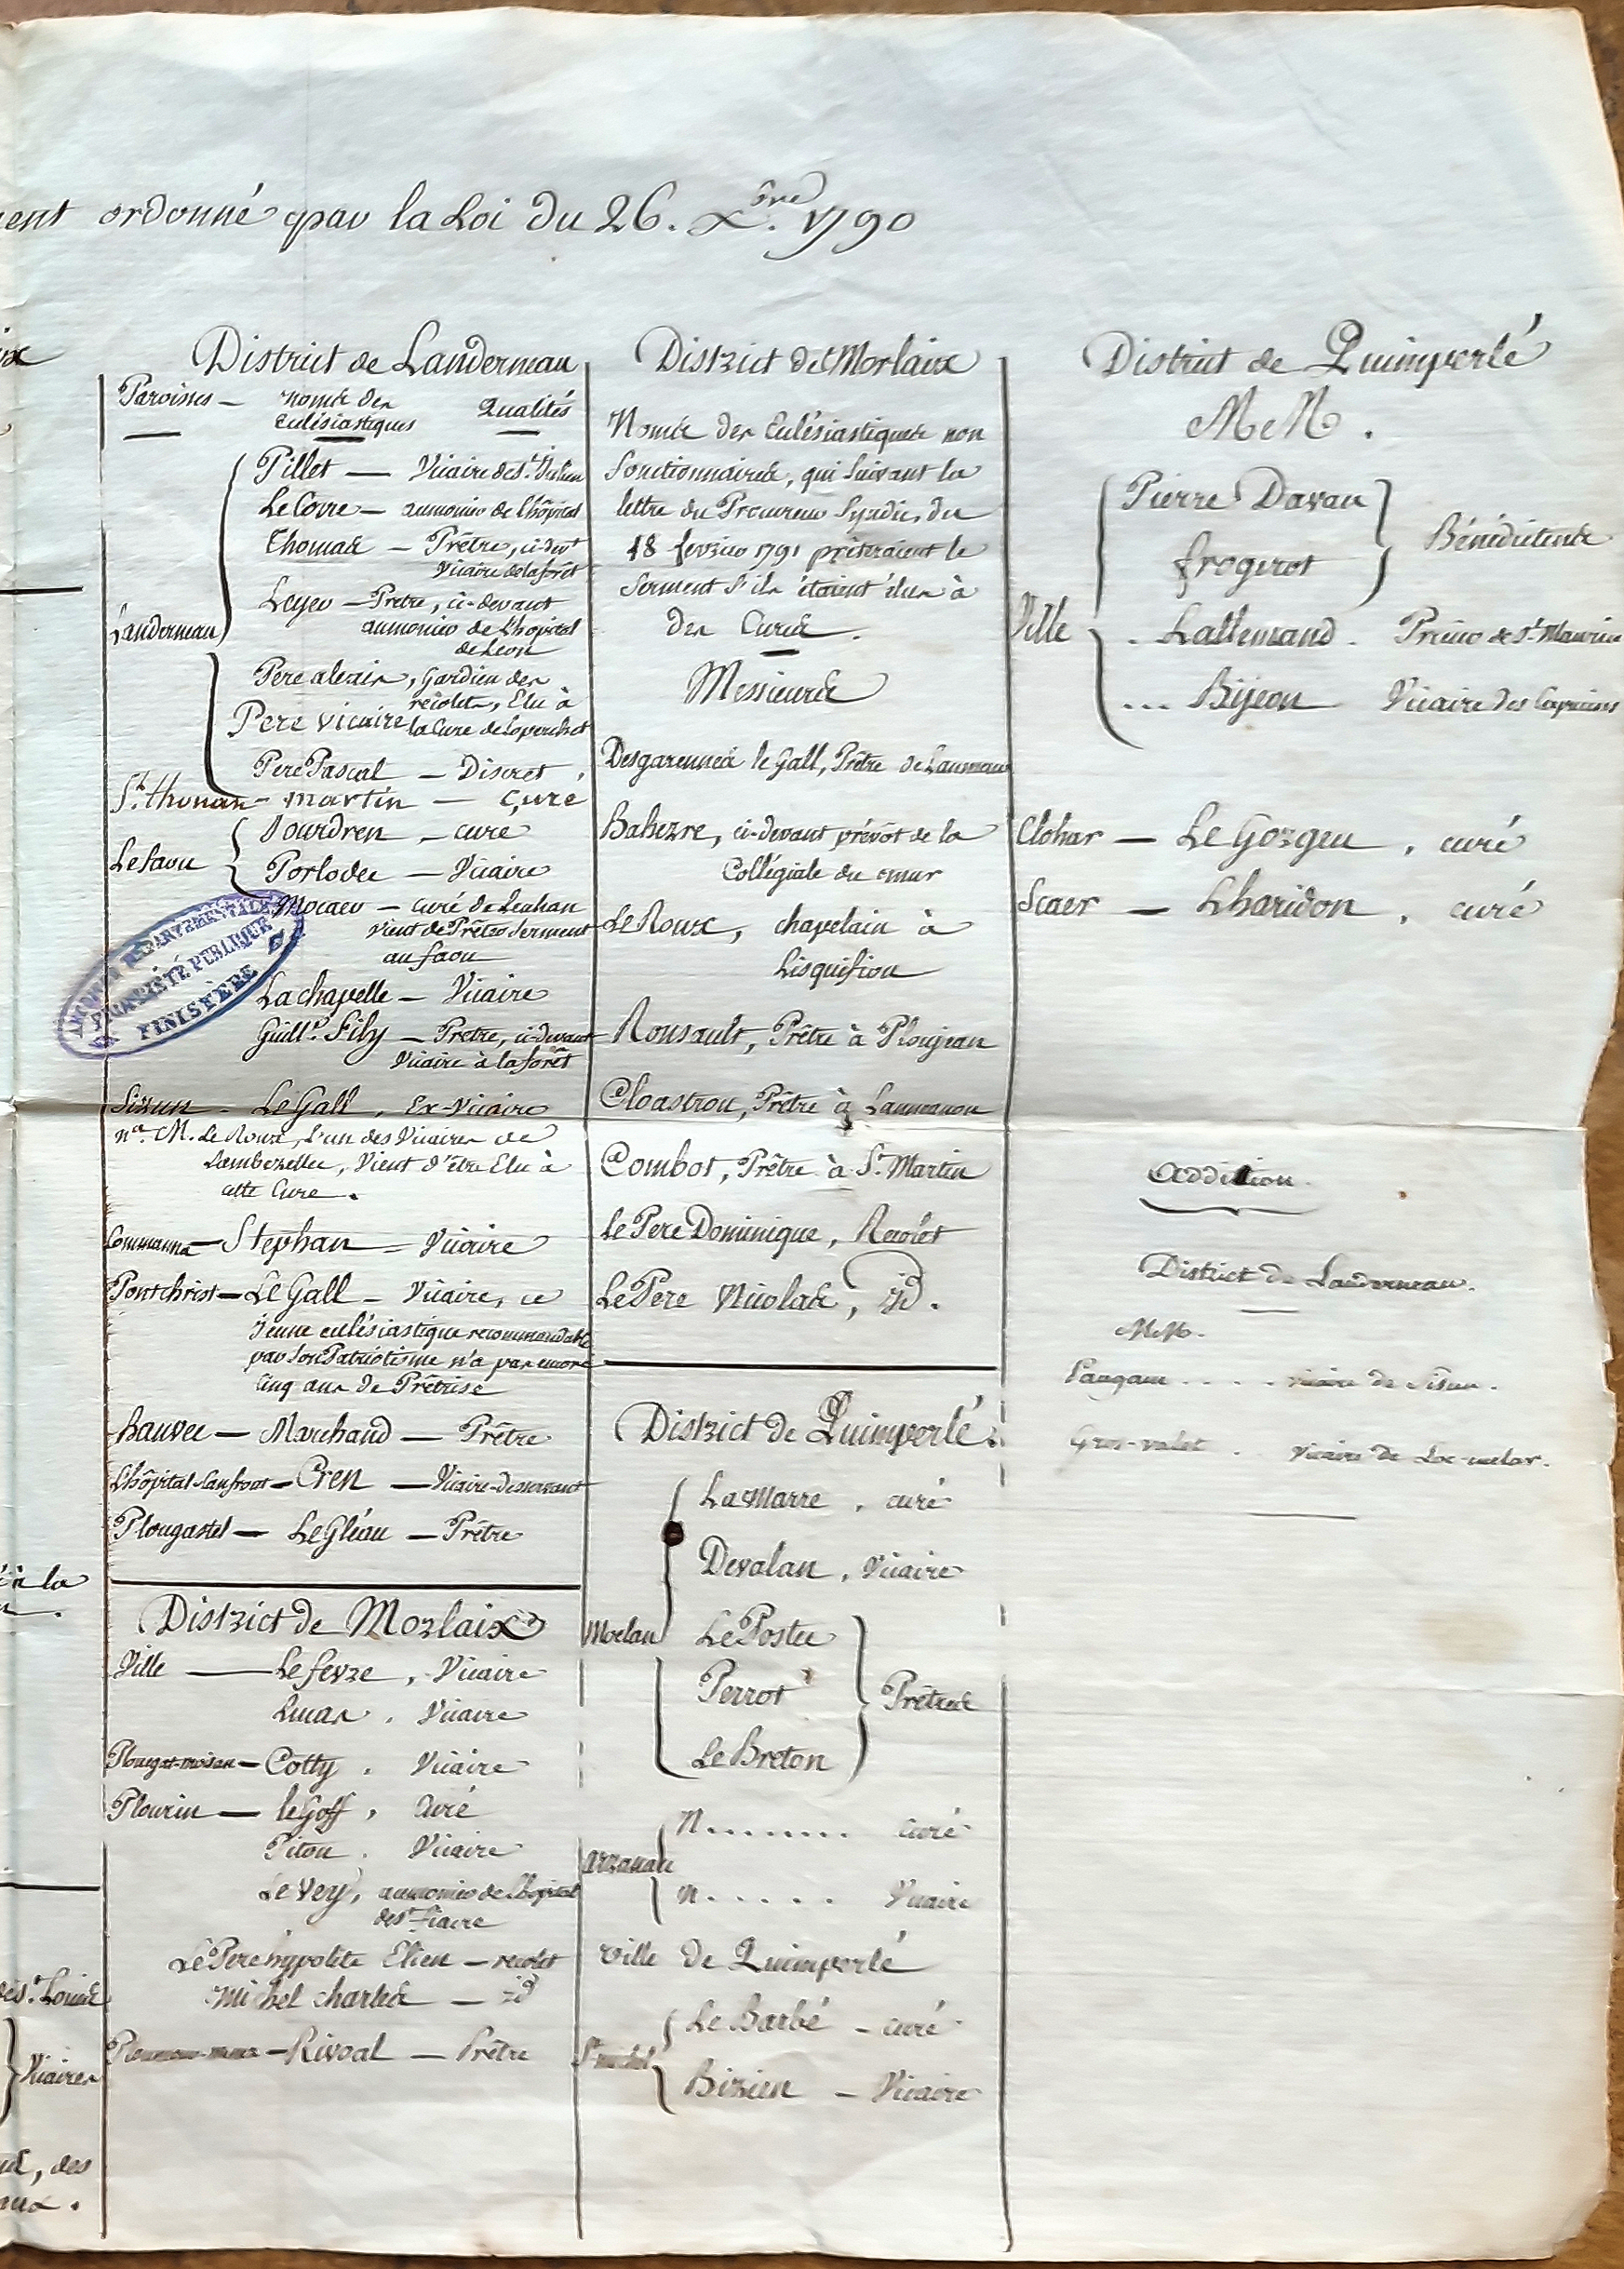 ent ordonné par la Loi du 26. Xbre. 1790
District de Landerneau
Paroisses — noms des Qualités
Eclésiastiques
Pillet — Vicaire de St. Julien
Le Corre — aumonier de l'hôpital
Thomas — Prêtre, ci-devt
Vicaire de la forêt
Leyer — Prêtre, ci-devant
aumonier de L'hopital
de Leon
Landerneau
Pere alexis, Gardien des
récolets, Elu à
Pere vicaire la Cure de Loperchet
Pere Pascal — Discret.
St. thonan - martin — Curé
Lefaou
Jourdren — curé
Porlodec — Vicaire
Mocaer — curé de Leuhan
Vient de Prêter Serment
au faou
Lachapelle — Vicaire
Guille. Fily — Prêtre, ci-devant
Vicaire à la forêt
Sizun - Le Gall, Ex-Vicaire
na. M. Le Roux, l'un des Vicaires de
Lambezellec, Vient d'être Elu à
cette Cure.
Commanna — Stephan = Vicaire
Pontchrist — Le Gall — Vicaire, ce
Jeune eclésiastique recommandable
par Son Patriotisme n'a pas encore
Cinq ans de Prêtrise
hanvec — Marchand — Prêtre
L'hôpital-Canfrout — Cren — Vicaire-desservant
Plougastel — Le Gléau — Prêtre
District de Morlaix
Ville — Lefevre, Vicaire
Lucas, Vicaire
Plougat-moisan — Cotty, Vicaire
Plourin — le Goff, Curé
Piton, Vicaire
Le Vey, aumonier de L'hopital
de St. fiacre
Le Pere hypolite Elien — recolet
Michel charles — id
Rivoal — Prêtre
District de Morlaix
Noms des Eclésiastiques non
fonctionnaires, qui Suivant la
lettre du Procureur Syndic, du
18 fevrier 1791 prêteraient le
Serment S'ils étaient élus à
des Cures.
Messieurs
Desgarennes le Gall, Prêtre de Lanmeur
Bahezre, ci-devant prévôt de la
Collégiale du mur
Le Roux, chapelain à
Lisquifiou
Rousault, Prêtre à Ploujean
Cloastrou, Prêtre à Lanmanou
Combot, Prêtre à St. Martin
Le Pere Dominique, Recolet
Le Pere Nicolas, id.
District de Quimperlé.
La Marre, curé
Devalan, Vicaire
Moelan
Le Postec
Perrot
Le Breton
Prêtres
Arzanau
N........ curé
N...... Vicaire
ville de Quimperlé
St. michel
Le Barbé — curé
Bizien — Vicaire
District de Quimperlé
MM.
Pierre Davau
frogerot
Bénédictins
Ville
. Lallemand. Prieur de St. Maurice
... Bijeon Vicaire des Capucins
Clohar — Le Gorgeu, curé
Scaer — Lharidon, curé
Addition.
District de Landerneau.
MM.
Paugam.... vicaire de Sisun.
Gros-valet. Vicaire de Loc-melar.
à la
de St. Louis
Vicaires
, des
ARCHIVES DÉPARTEMENTALES
PROPRIÉTÉ PUBLIQUE
FINISTÈRE